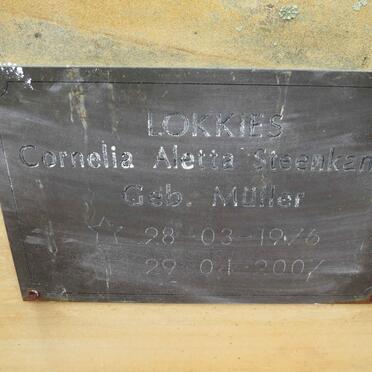 LOKKIES
Cornelia Aletta Steenkam
Geb. Müller
28-03-1976
29-04-2007